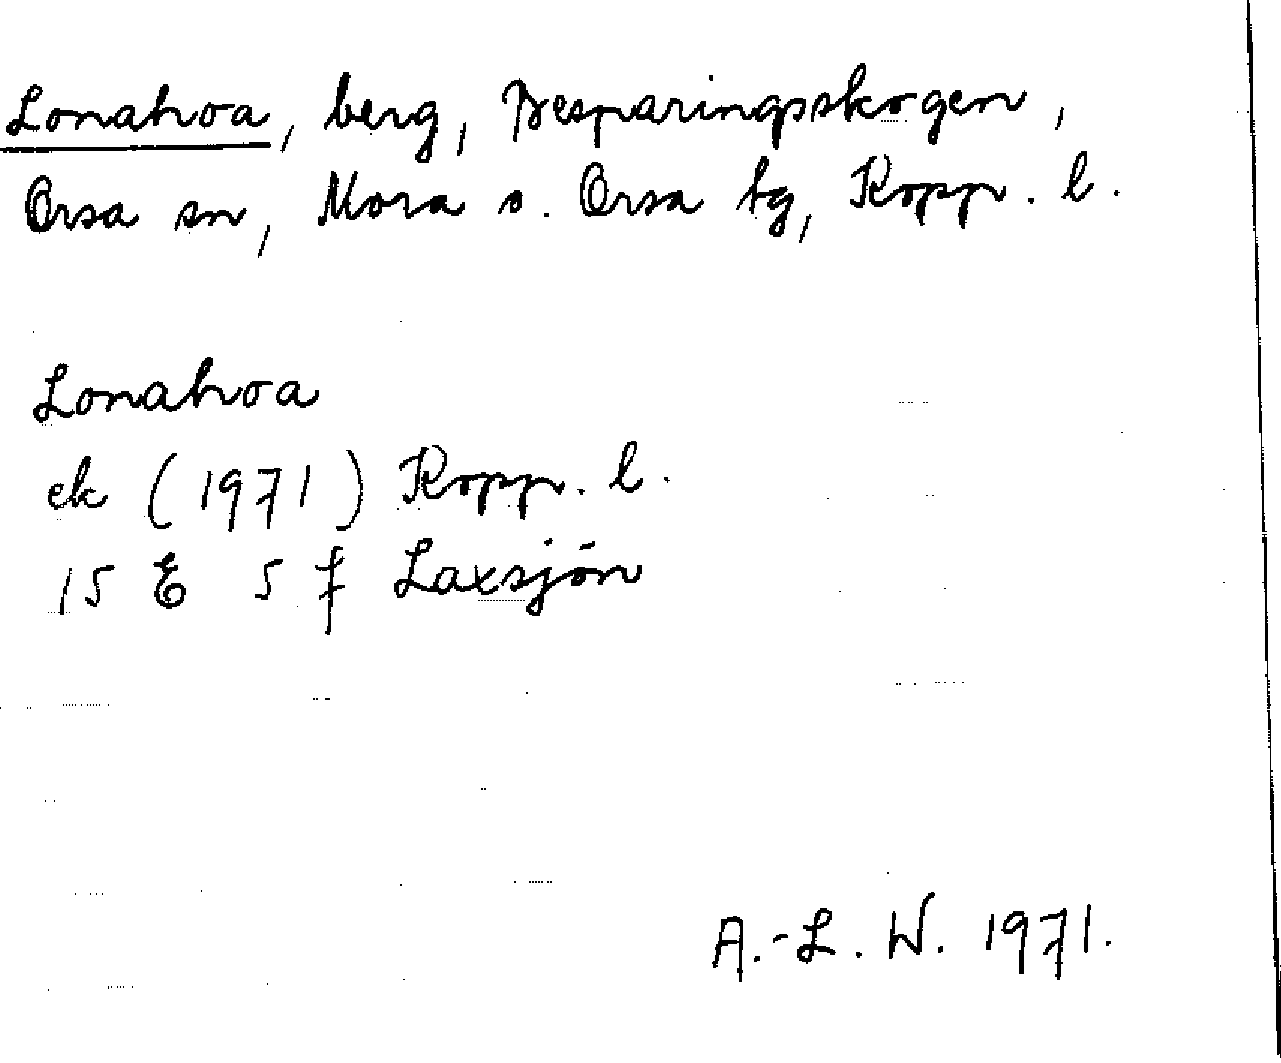 Lonahoa, berg, Besparingsskogen,
Orsa sn, Mora o. Orsa tg, Kopp. l.
Lonahoa
ek (1971) Kopp. l.
15 E 5 f Laxsjön
A.-L. W. 1971.